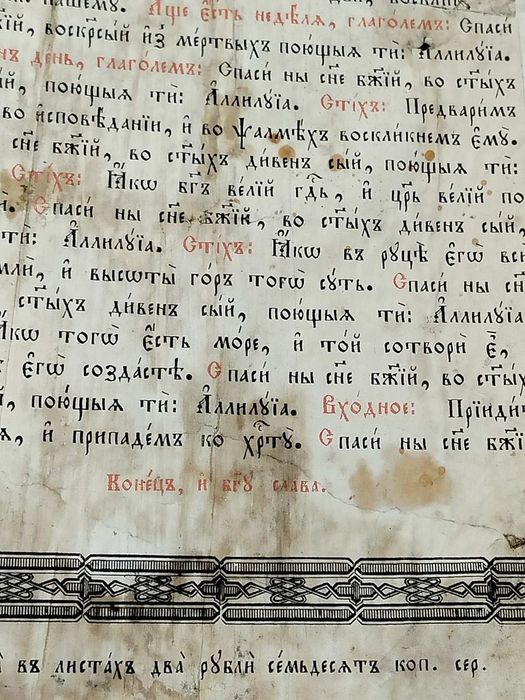 нашему. Аще є҆́сть недѣ́лѧ, глаго́лемъ: Спаси́
воскр҃сы́й и҆з̾ ме́ртвыхъ пою́щыѧ тѝ: А҆ллилꙋ́їа.
день, глаго́лемъ: Спаси́ ны сн҃е бж҃їй, во ст҃ы́хъ
пою́щыѧ тѝ: А҆ллилꙋ́їа. Сті́хъ: Предвари́мъ
во и҆сповѣ́данїи, и҆ во ѱалмѣ́хъ воскли́кнемъ є҆мꙋ̀.
сн҃е бж҃їй, во ст҃ы́хъ ди́венъ сы́й, пою́щыѧ тѝ:
Сті́хъ: Ꙗ҆́кѡ бг҃ъ ве́лїй гдⷭ҇ь, и҆ цр҃ь ве́лїй по
Спаси́ ны сн҃е бж҃їй, во ст҃ы́хъ ди́венъ сы́й,
тѝ: А҆ллилꙋ́їа. Сті́хъ: Ꙗ҆́кѡ въ рꙋцѣ̀ є҆гѡ̀ вси̑
и҆ высѡты̀ го́ръ тогѡ̀ сꙋ́ть. Спаси́ ны сн҃е
ст҃ы́хъ ди́венъ сы́й, пою́щыѧ тѝ: А҆ллилꙋ́їа
Ꙗ҆́кѡ тогѡ̀ є҆́сть мо́ре, и҆ то́й сотворѝ є҆̀,
є҆гѡ̀ созда́стѣ. Спаси́ ны сн҃е бж҃їй, во ст҃ы́хъ
пою́щыѧ тѝ: А҆ллилꙋ́їа. Вхо́дное: Прїиди́
и҆ припаде́мъ ко хрⷭ҇тꙋ̀. Спаси́ ны сн҃е бж҃їй
Коне́цъ, и҆ бг҃ꙋ сла́ва.
въ листа́хъ два̀ рꙋблѝ се́мьдесѧтъ коп. сер.